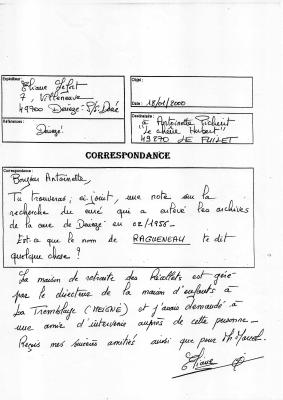 Expéditeur :
Eliane Lefort
7, Villeneuve
49700 Denezé-S/s-Doué
Objet :
Date : 18/01/2000
Références :
Denezé
Destinataire :
à Antoinette Picherit
"Le chêne Hubert"
49270 LE FUILET
CORRESPONDANCE
Correspondance :
Bonjour Antoinette,
Tu trouveras, ci-joint, une note sur la
recherche du curé qui a enlevé les archives
de la cure de Denezé en 02/1956.
Est-ce que le nom de RAGUENEAU te dit
quelque chose ?
La maison de retraite des Récollets est gérée
par le directeur de la maison d'enfants à
La Tremblaye (MEIGNÉ) et j'avais demandé à
une amie d'intervenir auprès de cette personne -
Reçois mes sincères amitiés ainsi que pour M. Marcel.
Eliane